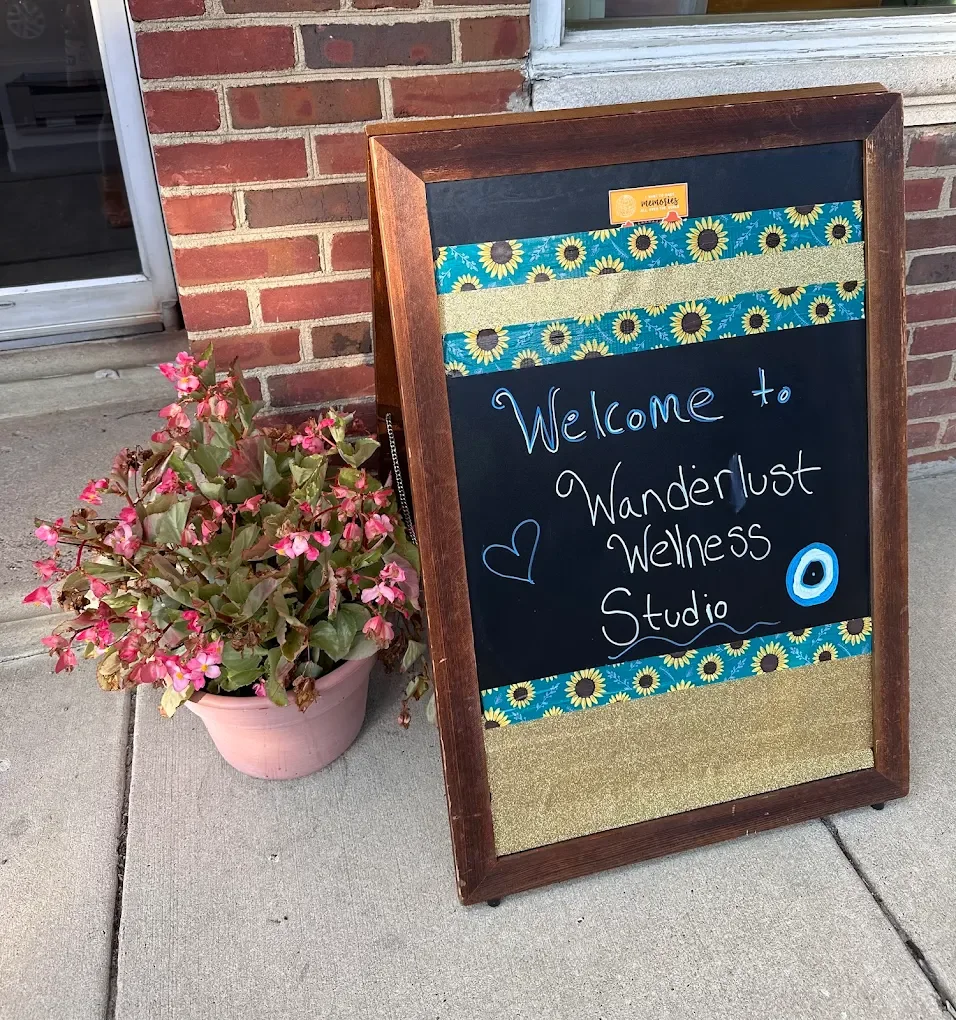 memories
Welcome to
Wanderlust
Wellness
Studio